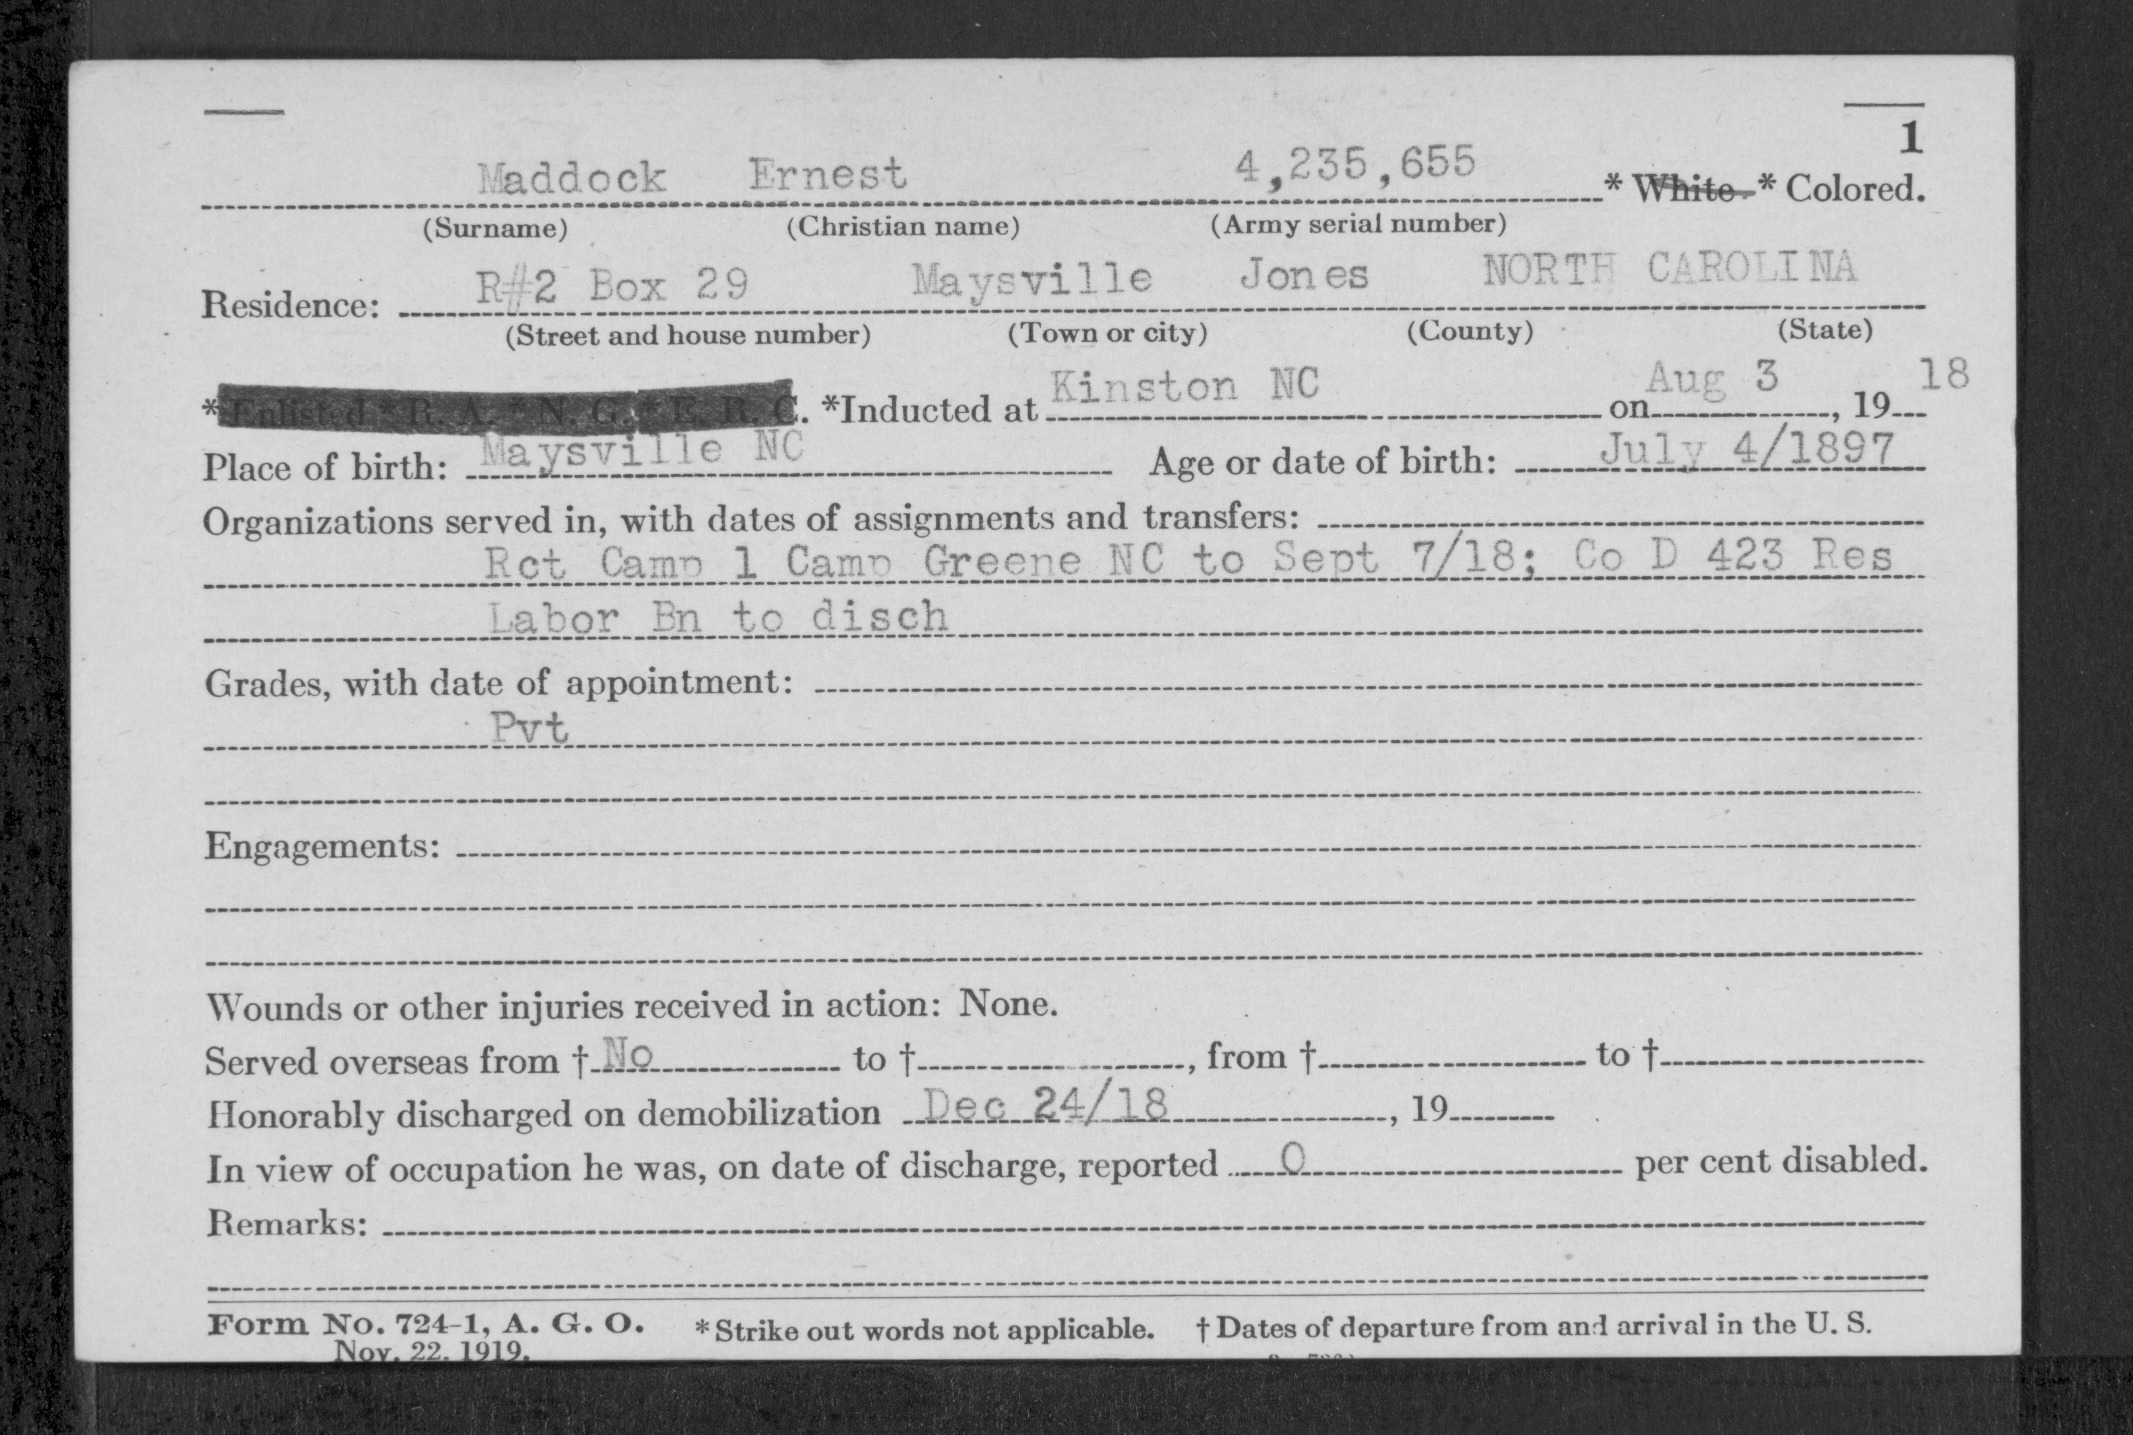 1
Maddock Ernest 4,235,655 * White * Colored.
(Surname) (Christian name) (Army serial number)
Residence: R#2 Box 29 Maysville Jones NORTH CAROLINA
(Street and house number) (Town or city) (County) (State)
*Enlisted *R. A. *N. G. *E. R. C. *Inducted at Kinston NC on Aug 3, 19 18
Place of birth: Maysville NC Age or date of birth: July 4/1897
Organizations served in, with dates of assignments and transfers:
Rct Camp 1 Camp Greene NC to Sept 7/18; Co D 423 Res
Labor Bn to disch
Grades, with date of appointment:
Pvt
Engagements:
Wounds or other injuries received in action: None.
Served overseas from † No to †, from † to †
Honorably discharged on demobilization Dec 24/18, 19
In view of occupation he was, on date of discharge, reported 0 per cent disabled.
Remarks:
Form No. 724-1, A. G. O. *Strike out words not applicable. † Dates of departure from and arrival in the U. S.
Nov. 22, 1919.